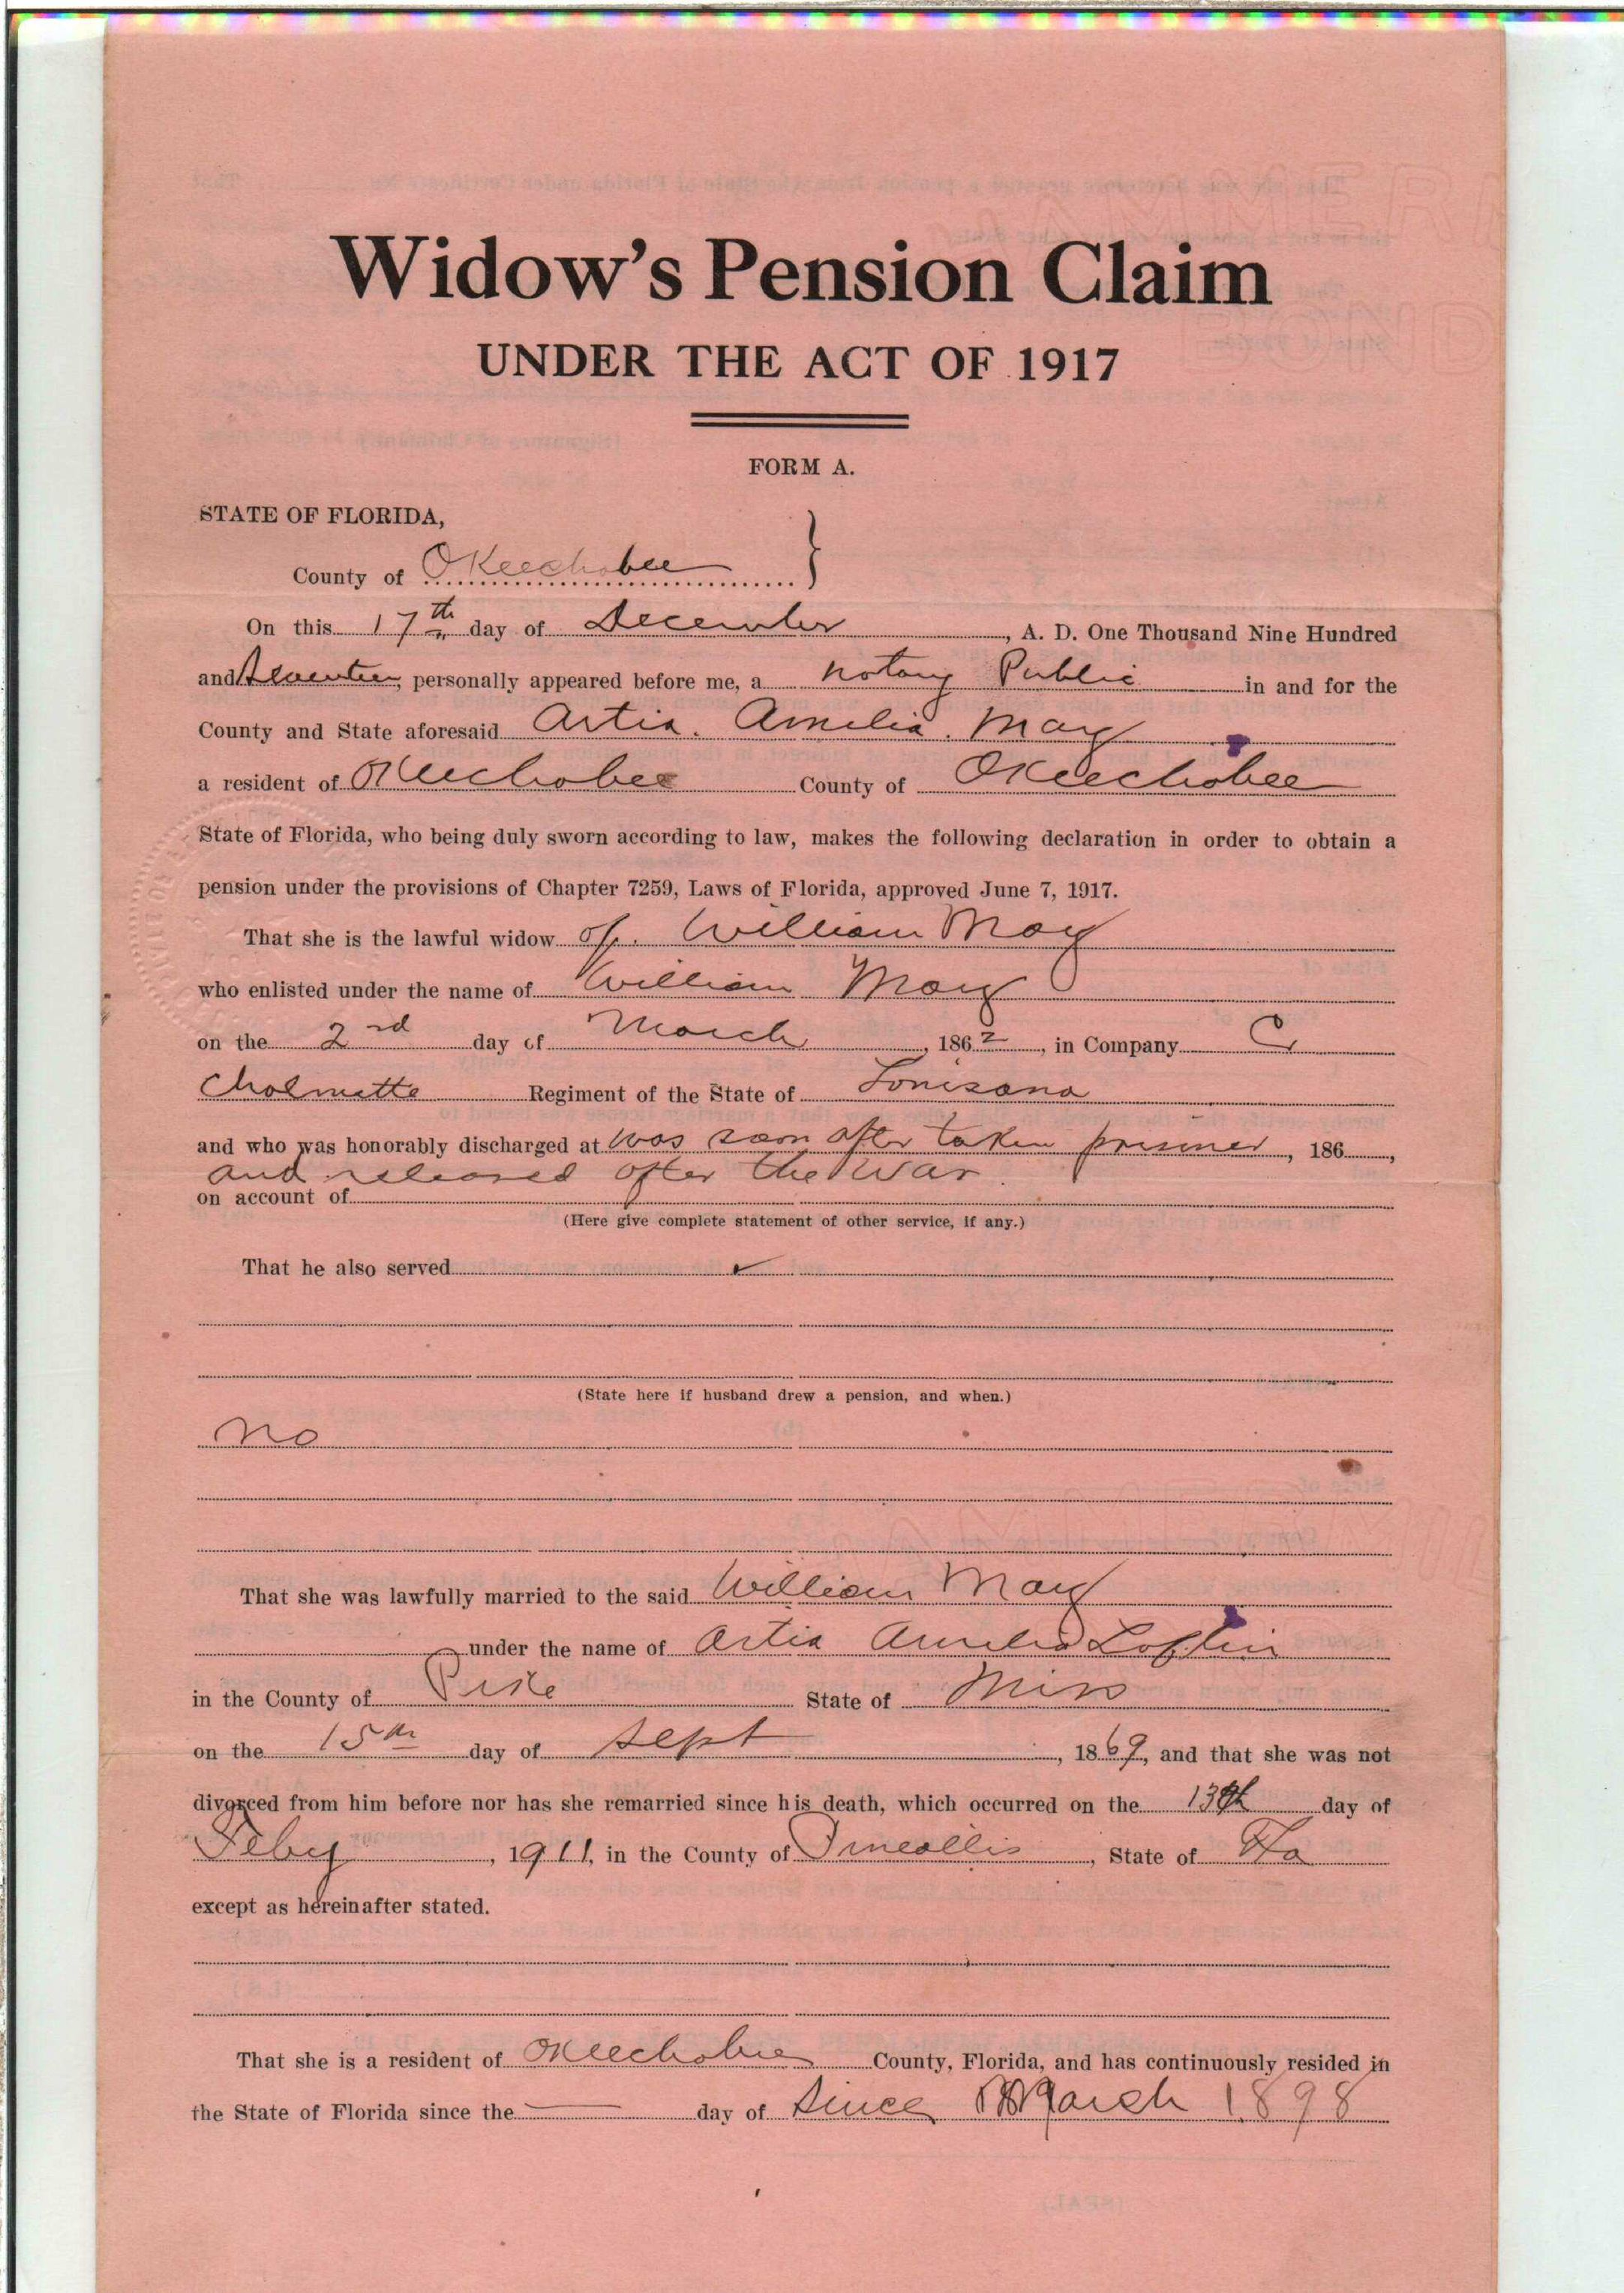 Widow's Pension Claim
UNDER THE ACT OF 1917
FORM A.
STATE OF FLORIDA,
County of Okeechobee
On this 17th day of December, A. D. One Thousand Nine Hundred
and Seventeen, personally appeared before me, a Notary Public in and for the
County and State aforesaid Artia. Amelia. May
a resident of Okeechobee County of Okeechobee
State of Florida, who being duly sworn according to law, makes the following declaration in order to obtain a
pension under the provisions of Chapter 7259, Laws of Florida, approved June 7, 1917.
That she is the lawful widow of. William May
who enlisted under the name of William May
on the 2nd day of March, 1862, in Company C
Chalmette Regiment of the State of Louisana
and who was honorably discharged at was soon after taken prisoner, 186 ,
and released after the War.
on account of
(Here give complete statement of other service, if any.)
That he also served
(State here if husband drew a pension, and when.)
No
That she was lawfully married to the said William May
under the name of Artia Amelia Loftin
in the County of Pike State of Miss
on the 15th day of Sept, 1869, and that she was not
divorced from him before nor has she remarried since his death, which occurred on the 13th day of
Feby, 1911, in the County of Pineallis, State of Fla
except as hereinafter stated.
That she is a resident of Okeechobee County, Florida, and has continuously resided in
the State of Florida since the — day of Since March 1898